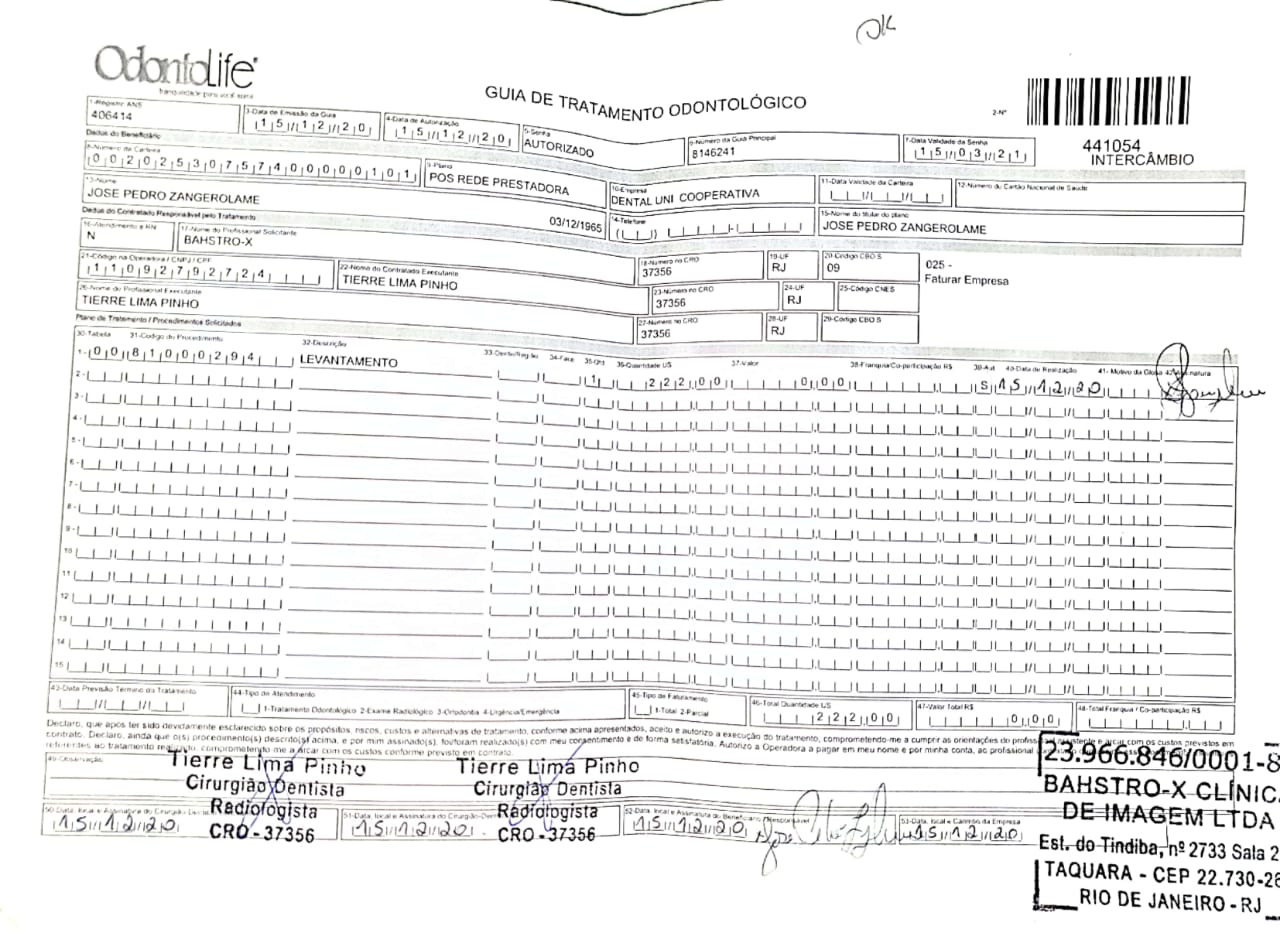 OK
OdontoLife
tranquilidade para você sorrir
GUIA DE TRATAMENTO ODONTOLÓGICO
2-Nº
441054
INTERCÂMBIO
1-Registro ANS
406414
3-Data de Emissão da Guia
15/12/20
4-Data de Autorização
15/12/20
5-Senha
AUTORIZADO
6-Número da Guia Principal
8146241
7-Data Validade da Senha
15/03/21
Dados do Beneficiário
8-Número da Carteira
00202530757400000101
9-Plano
POS REDE PRESTADORA
10-Empresa
DENTAL UNI COOPERATIVA
11-Data Validade da Carteira
12-Número do Cartão Nacional de Saúde
13-Nome
JOSE PEDRO ZANGEROLAME
03/12/1965
14-Telefone
15-Nome do titular do plano
JOSE PEDRO ZANGEROLAME
Dados do Contratado Responsável pelo Tratamento
16-Atendimento a RN
N
17-Nome do Profissional Solicitante
BAHSTRO-X
18-Número no CRO
37356
19-UF
RJ
20-Código CBO S
09
025 -
Faturar Empresa
21-Código na Operadora / CNPJ / CPF
11092792724
22-Nome do Contratado Executante
TIERRE LIMA PINHO
23-Número no CRO
37356
24-UF
RJ
25-Código CNES
26-Nome do Profissional Executante
TIERRE LIMA PINHO
27-Número no CRO
37356
28-UF
RJ
29-Código CBO S
Plano de Tratamento / Procedimentos Solicitados
30-Tabela 31-Código do Procedimento 32-Descrição 33-Dente/Região 34-Face 35-Qtd 36-Quantidade US 37-Valor 38-Franquia/Co-participação R$ 39-Aut 40-Data de Realização 41- Motivo da Glosa 42-Assinatura
1- 00 81000294 LEVANTAMENTO 1 222,00 0,00 S 15/12/20
2-
3-
4-
5-
6-
7-
8-
9-
10
11
12
13
14
15
43-Data Previsão Término do Tratamento
44-Tipo de Atendimento
1-Tratamento Odontológico 2-Exame Radiológico 3-Ortodontia 4-Urgência/Emergência
45-Tipo de Faturamento
1-Total 2-Parcial
46-Total Quantidade US
222,00
47-Valor Total R$
0,00
48-Total Franquia / Co-participação R$
Declaro, que após ter sido devidamente esclarecido sobre os propósitos, riscos, custos e alternativas de tratamento, conforme acima apresentados, aceito e autorizo a execução do tratamento, comprometendo-me a cumprir as orientações do profissional assistente e arcar com os custos previstos em
contrato. Declaro, ainda que o(s) procedimento(s) descrito(s) acima, e por mim assinado(s), foi/foram realizado(s) com meu consentimento e de forma satisfatória. Autorizo a Operadora a pagar em meu nome e por minha conta, ao profissional
referentes ao tratamento realizado, comprometendo-me a arcar com os custos conforme previsto em contrato.
49-Observação
Tierre Lima Pinho
Cirurgião Dentista
Radiologista
CRO - 37356
Tierre Lima Pinho
Cirurgião Dentista
Radiologista
CRO - 37356
50-Data, local e Assinatura do Cirurgião-Dentista
15/12/20
51-Data, local e Assinatura do Cirurgião-Dentista
15/12/20
52-Data, local e Assinatura do Beneficiário / Responsável
15/12/20
53-Data, local e Carimbo da Empresa
15/12/20
23.966.846/0001-8
BAHSTRO-X CLÍNICA
DE IMAGEM LTDA
Est. do Tindiba, nº 2733 Sala 2
TAQUARA - CEP 22.730-26
RIO DE JANEIRO - RJ